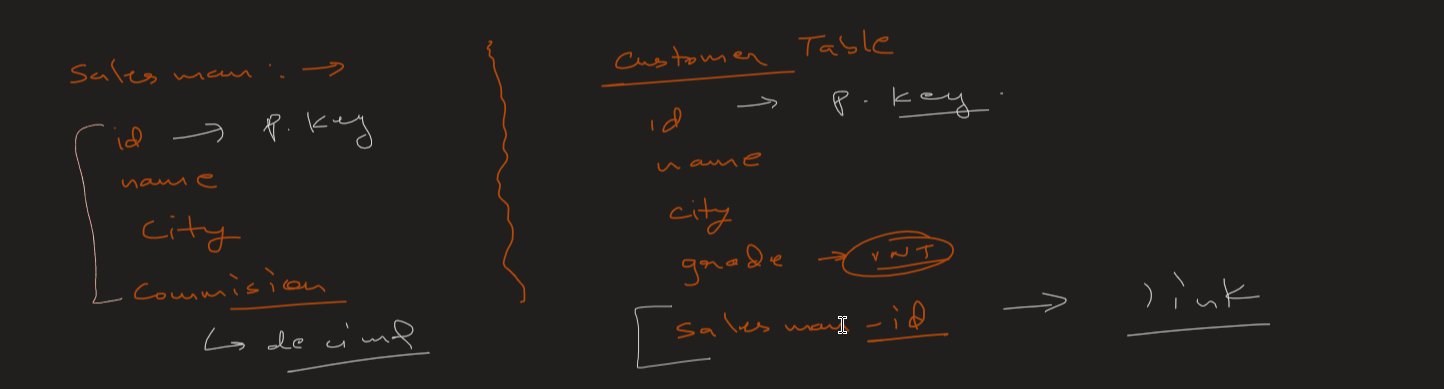 Salesman: →
id → P. key
name
city
Commision
↳ decimal
Customer Table
id → P. key.
name
city
grade → INT
Salesman-id → link